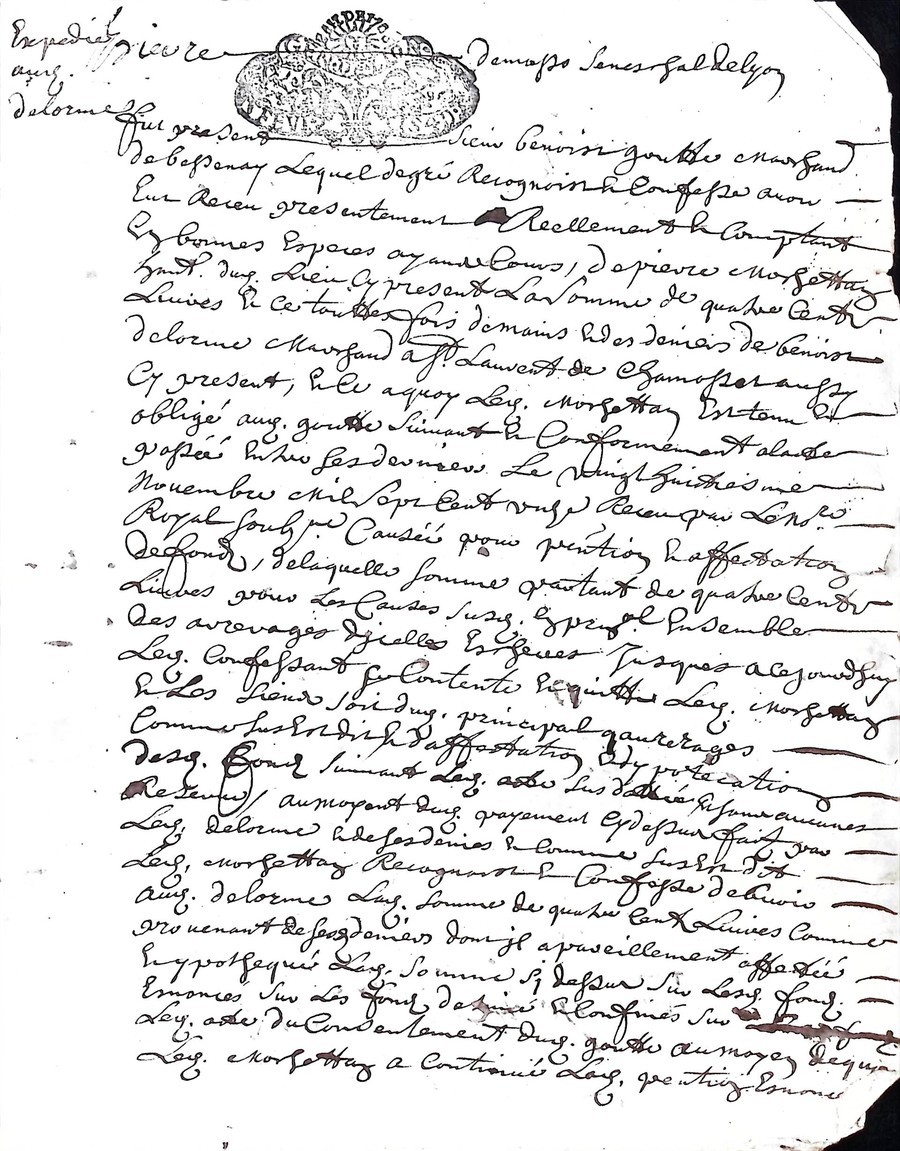 Expedié
aud.
delorme
pierre demasso Seneschal de lyon
fut present Sieur benoist goutte Marchand
de bessenay Lequel de gré Recognoist & Confesse avoir
Eut Receu presentement Reellement & Comptant
En bonnes Especes ayant Cours, de pierre Morgettay
habt. dud. Lieu Cy present La Somme de quatre Centz
Livres & ce touttes fois demains & des deniers de benoist
delorme Marchand a St. Laurent de Chamosset aussy
Cy present, & Ce a quoy Led. Morgettay Est tenu &
obligé aud. goutte Suivant & Conformement a lacte
passéé Entre Les dernier Le vingt huitiesme
Novembre Mil Sept Cent unze Receu par Le No.re
Royal Soubs.ne Causéé pour pention & affectation
de fondz, de laquelle Somme partant de quatre Centz
Livres pour Les Causes Susd. En prin.al Ensemble
des arrerages dijcelles Escheues Jusques a Cejourdhuy
Led. Confessant Se Contente & quitte Led. Morgettay
& Les Siens Soit dud. principal q aurerages
Comme Sus Est dit & d'affectation & dypotecation
desd. fondz Suivant Led. acte Sus dattéé Sans aucunes
Reserves, au moyent dud. payement Cy dessus fait par
Led. delorme & de Ses deniers & Comme Sus Est dit
Led. Morgettay Recognoist & Confesse debvoir
aud. delorme Lad. Somme de quatre Cent Livres Comme
provenant de Sesd deniers dont jl a pareillement affectéé
& ypothequé Lad. Somme Sj dessus Sur Lesd. fondz
Enoncés Sur Les fondz & Confinés Sur
Led. acte du Consentement dud. goutte au moyen dequoy
Led. Morgettay a Continué Lad. pention Enoncé